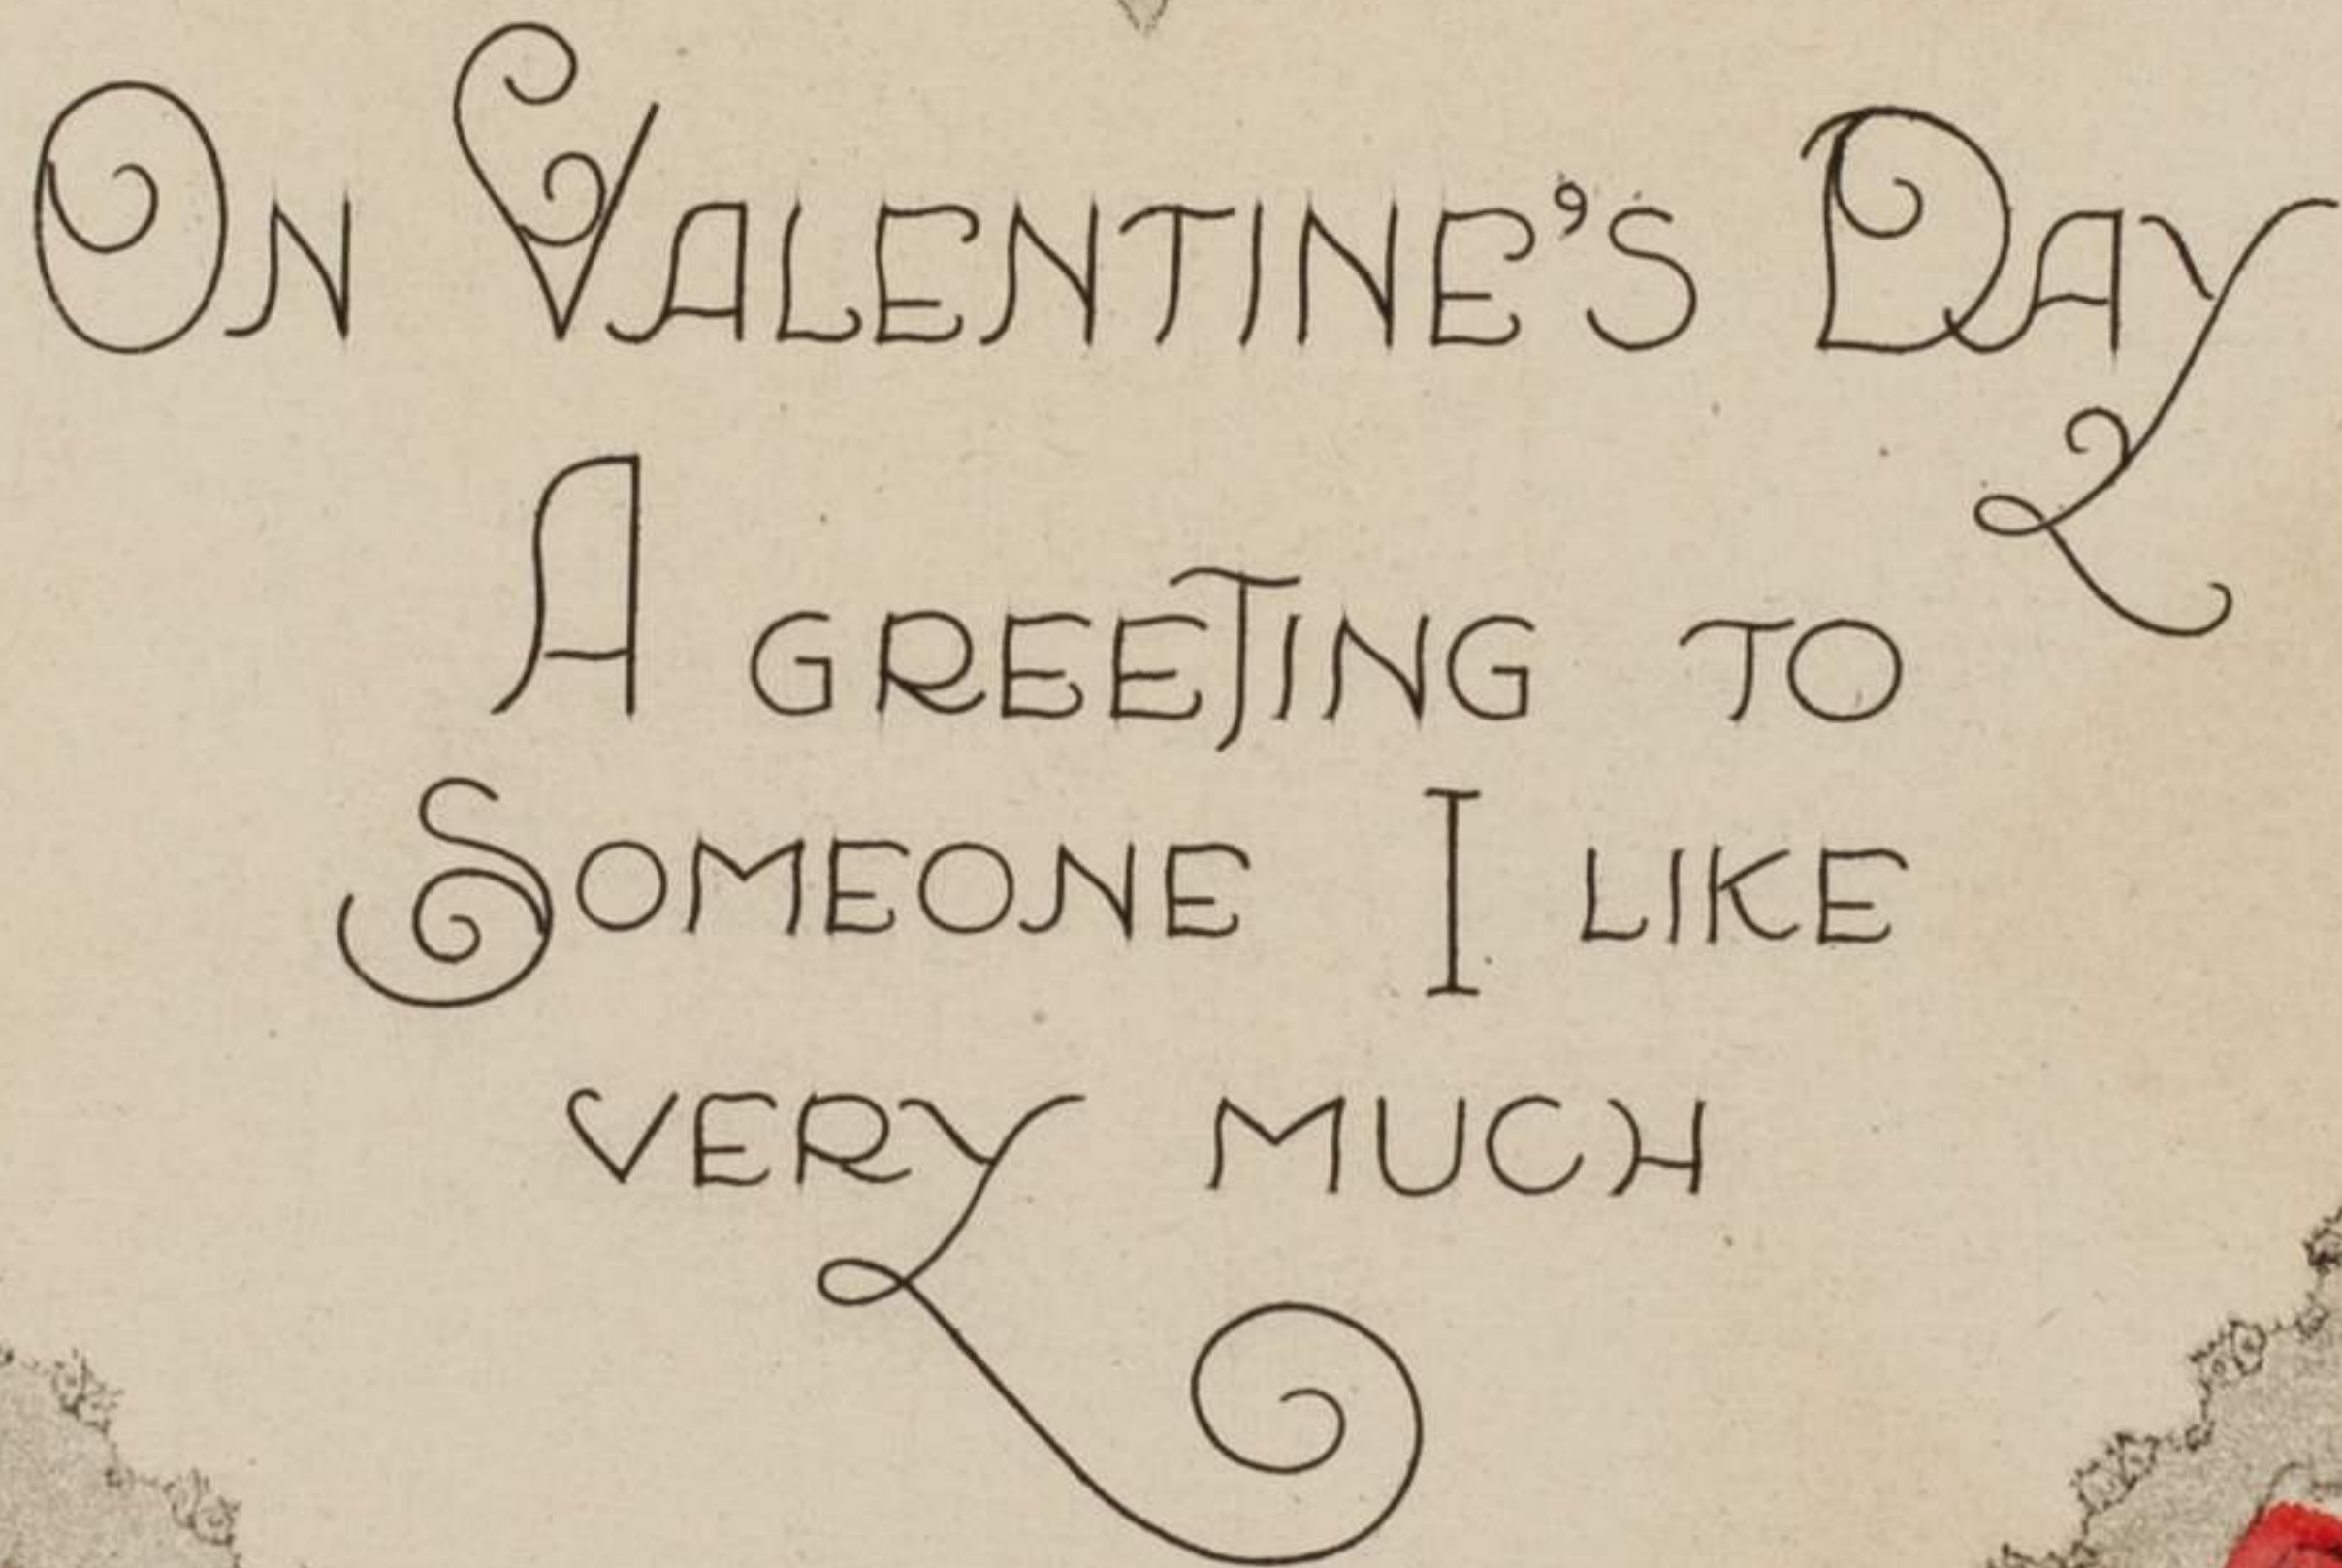 On Valentine's Day
A greeting to
Someone I like
very much